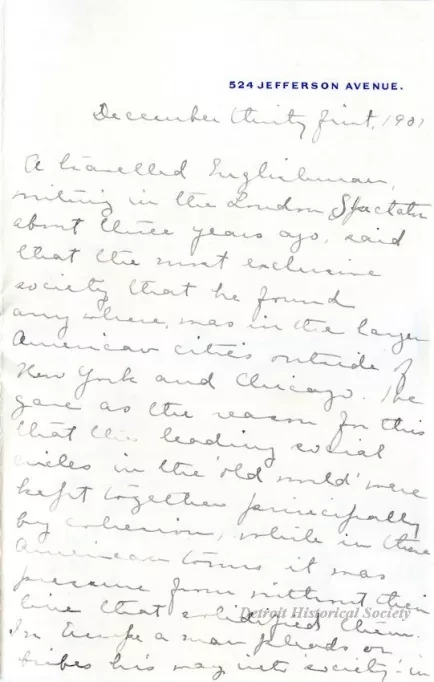 524 JEFFERSON AVENUE.
December thirty first, 1901
A travelled Englishman,
writing in the London Spectator
about three years ago, said
that the most exclusive
society that he found
anywhere, was in the larger
American cities outside of
New York and Chicago. He
gave as the reason for this
that the leading social
circles in the 'old world' were
kept together principally
by cohesion, while in these
American towns it was
pressure from without their
line that solidified them.
In Europe a man pleads or
bribes his way into 'society'-in
Detroit Historical Society